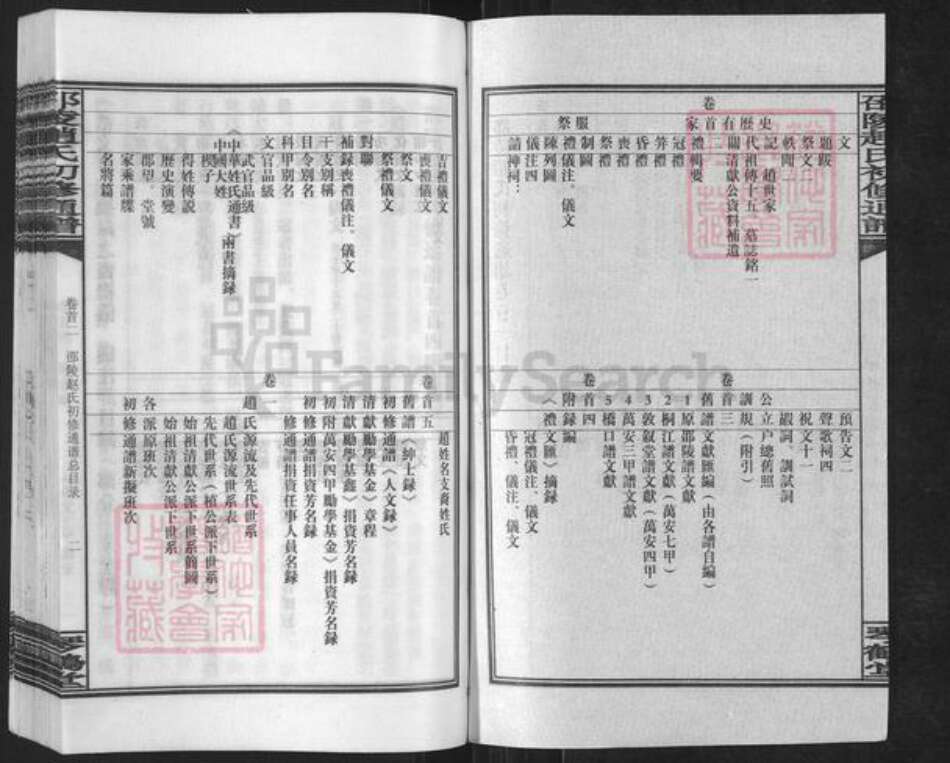 邵陵趙氏初修通譜
文
題跋
祭文
軼聞
史記 趙世家
歷代祖傳十五 墓誌銘一
有關清獻公資料補遺
卷首二
家禮輯要
冠禮
笄禮
昏禮
喪禮
祭禮
服制圖
祭禮儀注。儀文
陳列圖
儀注四
請神祠…
預告文二
聲歌祠四
祝文十一
嘏詞、訓試詞
公立户總舊照
訓規(附引)
卷首三
舊譜文獻匯編(由各譜自編)
1原邵陵譜文獻
2桐江譜文獻(萬安七甲)
3敦敘堂譜文獻(萬安四甲)
4萬安三甲譜文獻
5橋口譜文獻
卷首四
附録編
(禮文匯)摘録
冠禮儀注、儀文
昏禮、儀注、儀文
琴鶴堂
吉禮儀文
喪禮儀文
祭文
祭禮儀文
對聯
補録喪禮儀注。儀文
干支别稱
月令别名
科甲别名
文官品級
武官品級
《中華姓氏通書》兩書摘録
中國大姓
楔子
得姓傳説
歷史演變
郡望。堂號
家乘譜牒
名將篇
趙姓名支裔姓氏
卷首五
舊譜(紳士録)
初修通譜(人文録)
清獻勵學基金)章程
清獻勵學基鑫)捐資芳名録
初附萬安四甲勵學基金)捐資芳名録
初修通譜捐資芳名録
修通譜捐資任事人員名録
卷一
趙氏源流及先代世系
趙氏源流世系表
先代世系(植公派下世系)
始祖清獻公派下世系簡圖
始祖清獻公派下世系
各派原班次
初修通譜新擬班次
邵陵趙氏初修通譜
卷首二 邵陵赵氏初修通谱总目录 二
琴鶴堂
FamilySearch